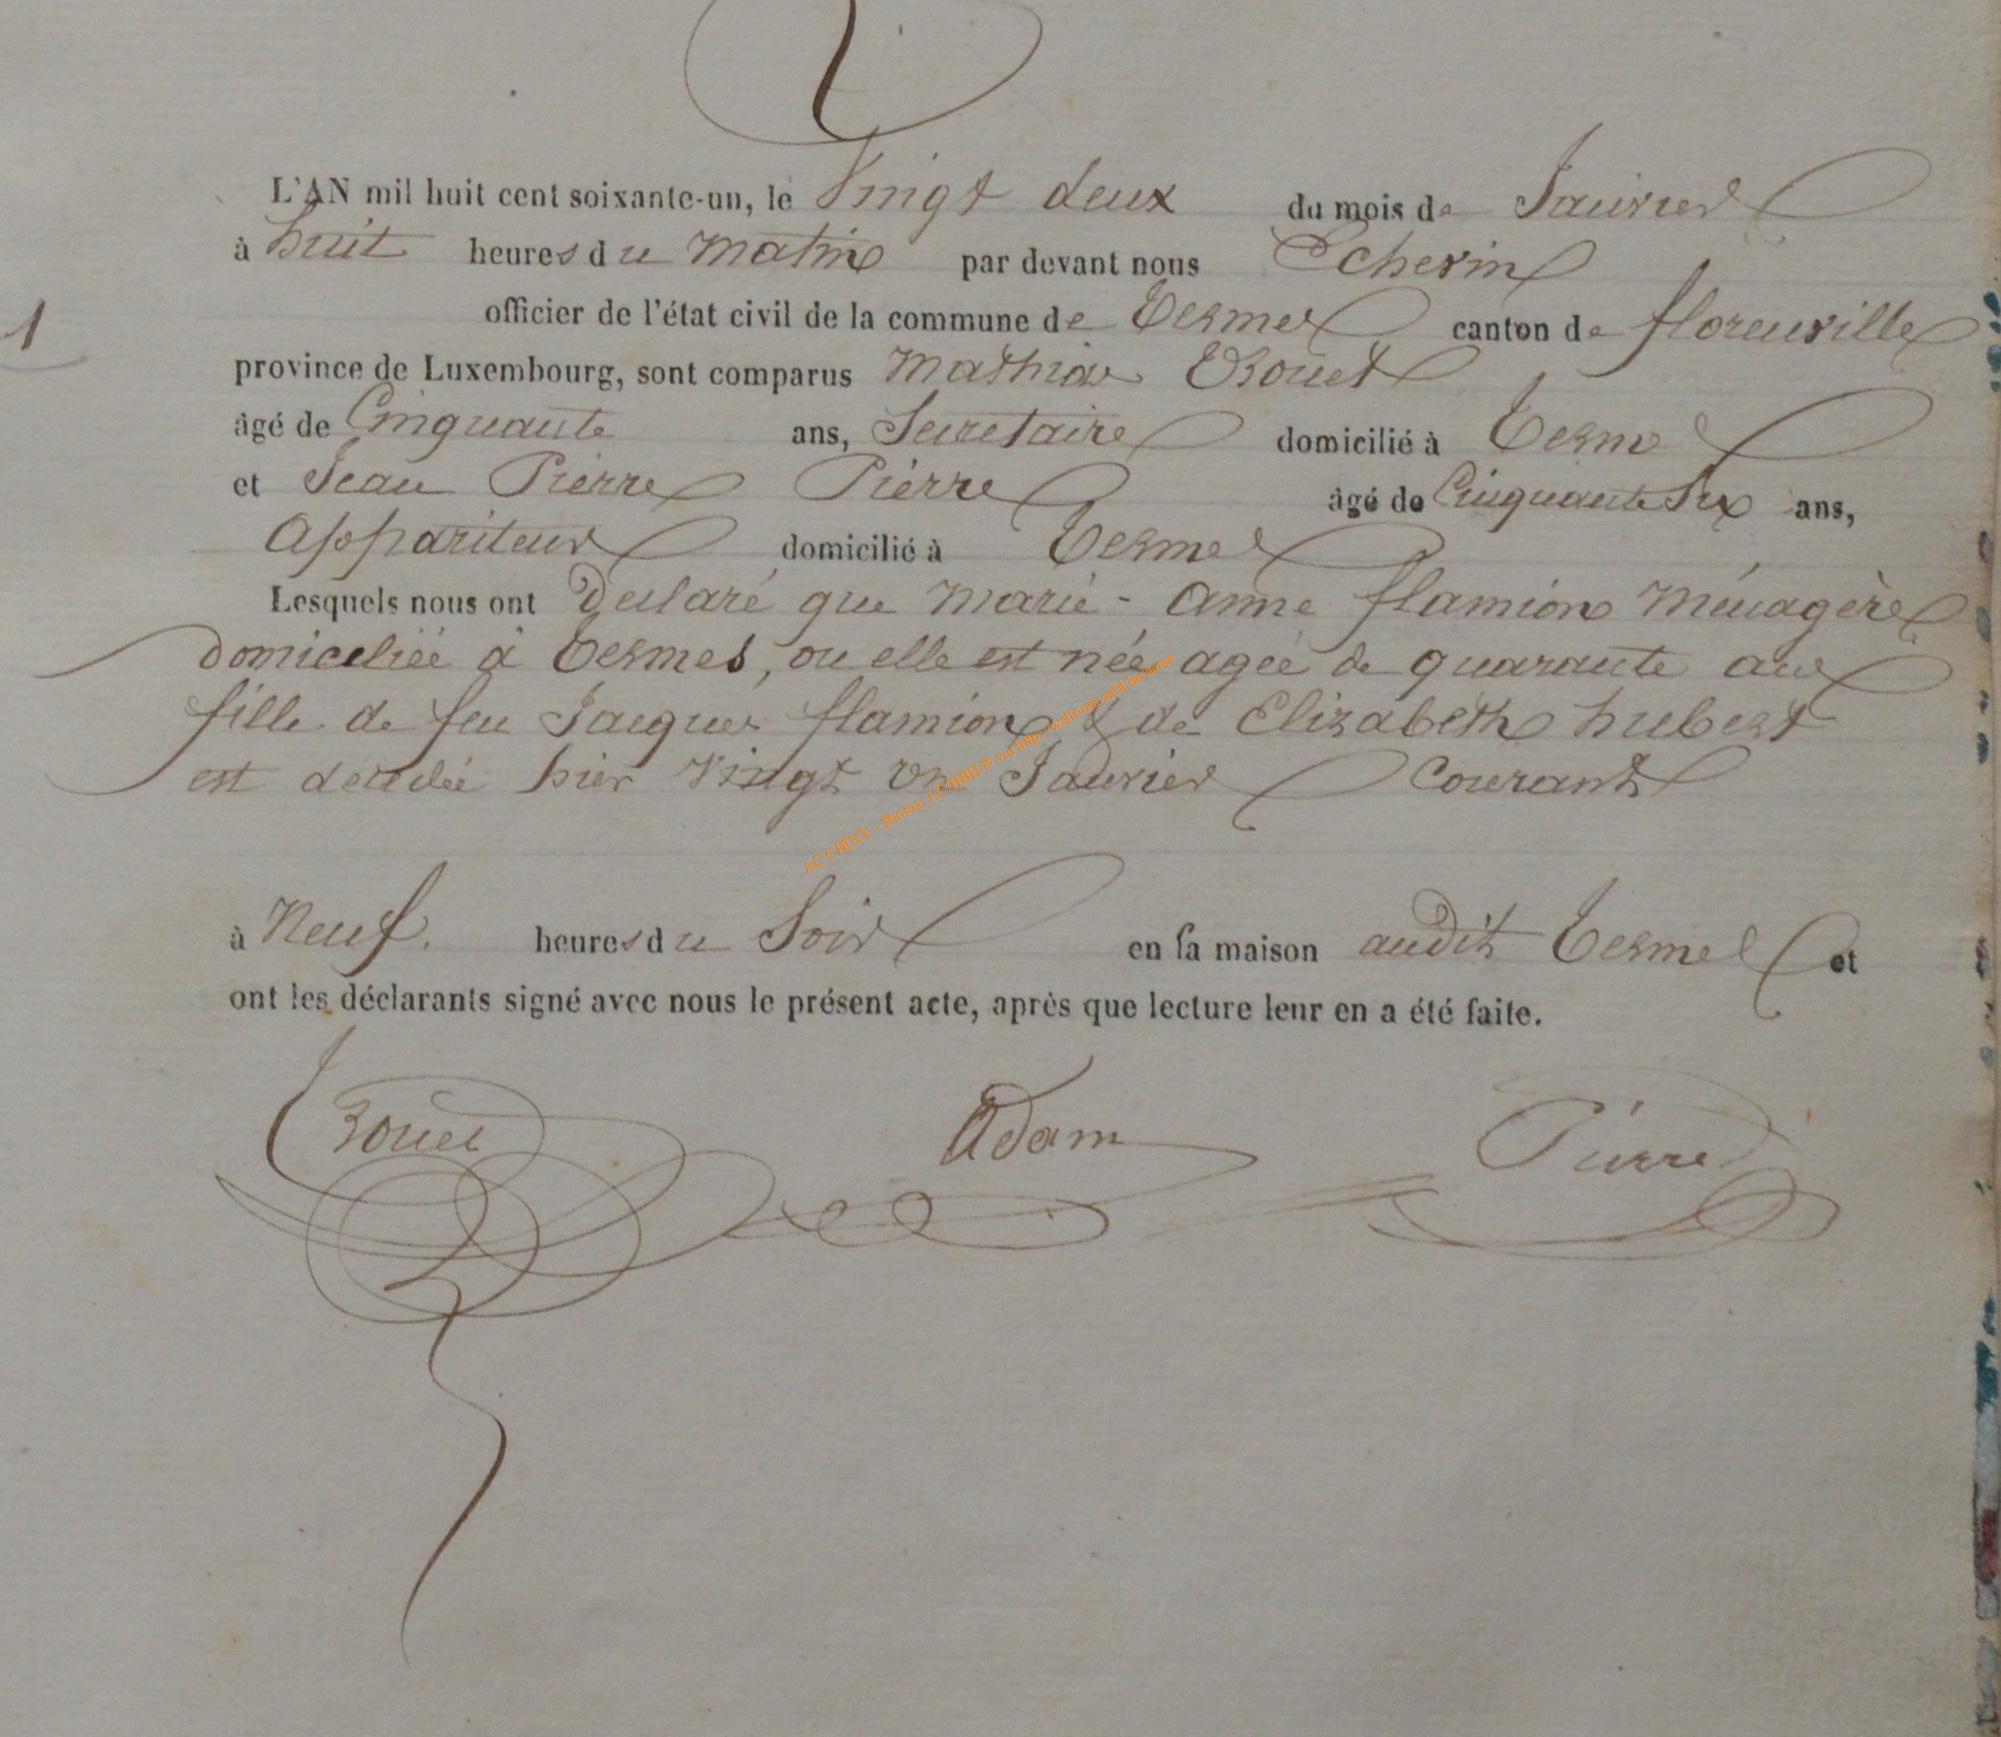 L'AN mil huit cent soixante-un, le Vingt deux du mois de Janvier
à huit heures du matin par devant nous Echevin
officier de l'état civil de la commune de Termes canton de florenville
1
province de Luxembourg, sont comparus Mathias Trouet
âgé de Cinquante ans, Secretaire domicilié à Termes
et Jean Pierre Pierre âgé de Cinquante Six ans,
appariteur domicilié à Termes
Lesquels nous ont Declaré que Marie-anne flamion Ménagère
domiciliée à Termes, ou elle est née agée de quarante ans
fille de feu Jacques flamion & de Elizabeth hubert
est decedée hier Vingt un Janvier Courant
ACCHINY - Photos
à Neuf. heures du Soir en sa maison audit Termes et
ont les déclarants signé avec nous le présent acte, après que lecture leur en a été faite.
Trouet Adam Pierre